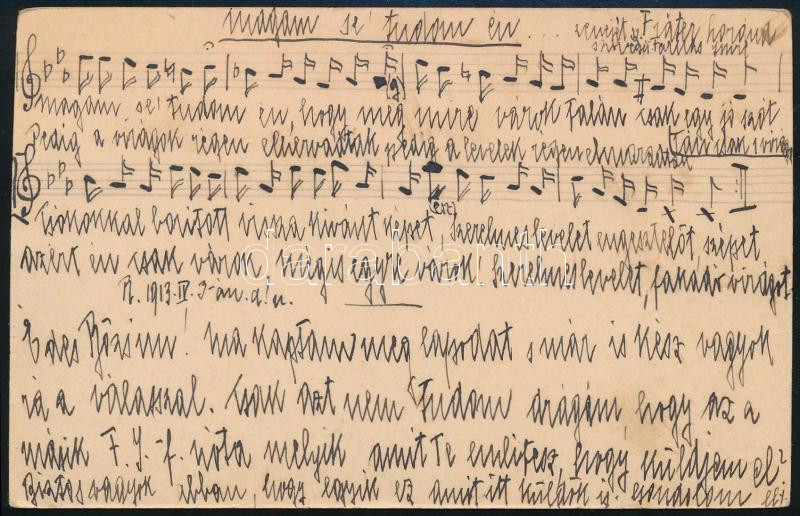 Magam se' tudom én ... zenéjét Fráter Loránd
Magam se' tudom én, hogy még mire várok Talán csak egy jó szót
Pedig a virágok régen elhervadtak pedig a levelek régen elmaradtak
Csókokkal borított vissza kívánt képet, Szerelmeslevelet engesztelőt, szépet
azért én csak várok, mégis egyre várok Szerelmeslevelet, fakadó virágot.
1913. IV. 3-án d. u.
Édes Bözsim! Ma kaptam meg lapodat s már is kész vagyok
rá a válasszal. Csak azt nem tudom drágám, hogy az a
másik F. J.-f. nóta melyik amit Te említesz, hogy küldjem el?
Biztos vagyok abban, hogy egyik ez amit itt küldök is gondolom
darabanth